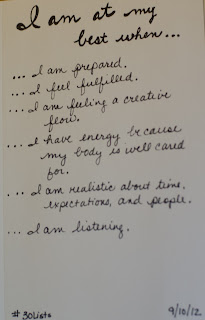 I am at my
best when...
... I am prepared.
... I feel fulfilled.
... I am feeling a creative
flow.
... I have energy because
my body is well cared
for.
... I am realistic about time,
expectations, and people.
... I am listening.
#30Lists
9/10/12